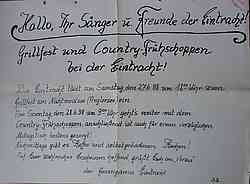 Hallo, Ihr Sänger u. Freunde der Eintracht!
Grillfest und Country-Frühschoppen
bei der Eintracht!
Die Eintracht lädt am Samstag den 27.6.98 um Uhr zum
Grillfest am ein.
Am Sonntag den 28.6.98 um Uhr geht's weiter mit dem
Country-Frühschoppen, anschließend ist auch für einen
Mittagstisch bestens gesorgt!
Nachmittags gibt es Kaffee und selbstgebackenen Kuchen!
Auf Euer zahlreiches Erscheinen hofft und freut sich der Verein
der Gesangverein Eintracht